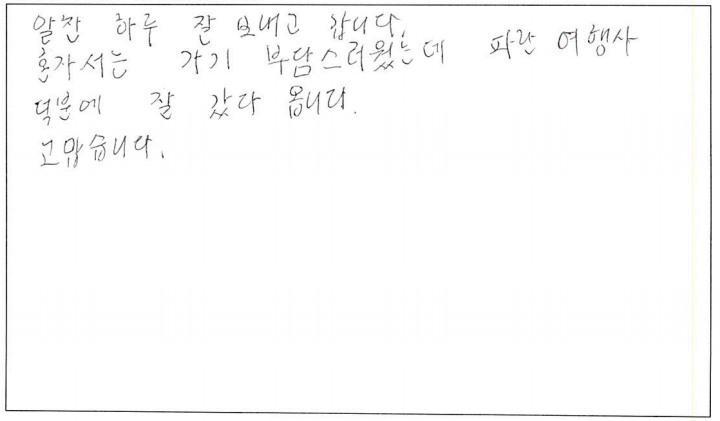 알찬 하루 잘 보내고 갑니다.
혼자서는 가기 부담스러웠는데 파란 여행사
덕분에 잘 갔다 옵니다.
고맙습니다.